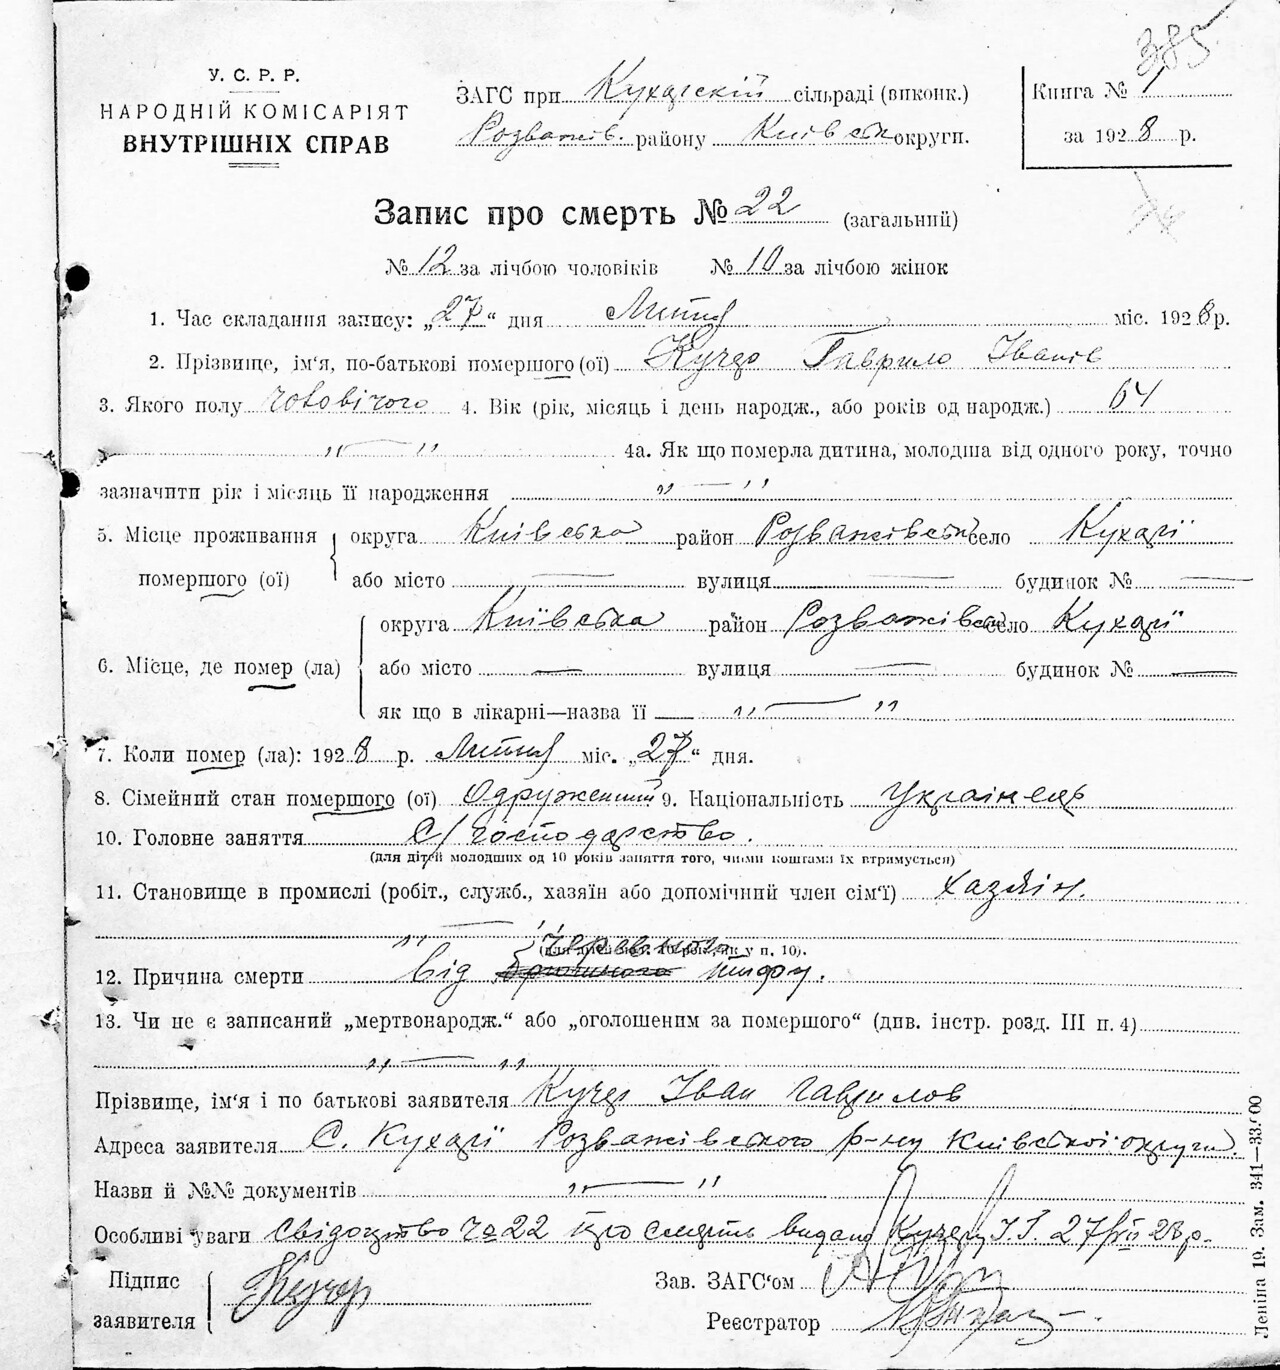 385
У. С. Р. Р.
НАРОДНІЙ КОМІСАРІЯТ
ВНУТРІШНІХ СПРАВ
ЗАГС при Кухарскій сільраді (виконк.)
Розважів. району Київськ округи.
Книга № 1
за 1928 р.
Запис про смерть № 22 (загальний)
№ 12 за лічбою чоловіків № 10 за лічбою жінок
1. Час складання запису: „27“ дня Липня міс. 1928 р.
2. Прізвище, ім'я, по-батькові помершого (ої) Кучер Гаврило Іванів
3. Якого полу чоловічого 4. Вік (рік, місяць і день народж., або років од народж.) 64
„ — “ 4а. Як що померла дитина, молодша від одного року, точно
зазначити рік і місяць її народження „ — “
5. Місце проживання помершого (ої)
округа Київська район Розважівськ село Кухарі
або місто — вулиця — будинок № —
6. Місце, де помер (ла)
округа Київська район Розважівськ село Кухарі
або місто — вулиця — будинок № —
як що в лікарні—назва її „ — “
7. Коли помер (ла): 1928 р. Липня міс. „27“ дня.
8. Сімейний стан помершого (ої) Одружений 9. Національність Українець
10. Головне заняття С/господарство.
(для дітей молодших од 10 років заняття того, чиїми коштами їх втримується)
11. Становище в промислі (робіт., служб., хазяїн або допомічний член сім'ї) хазяїн.
„ — “
(для дітей мол. 10 рок., як у п. 10).
12. Причина смерти від черевного тифу.
13. Чи не є записаний „мертвонародж.“ або „оголошеним за помершого“ (див. інстр. розд. III п. 4)
„ — “
Прізвище, ім'я і по батькові заявителя Кучер Іван Гаврилов
Адреса заявителя С. Кухарі Розважівського р-ну Київської округи.
Назви й №№ документів „ — “
Особливі уваги Свідоцтво № 22 про смерть видано Кучеру І. Г. 27/VII 28 р.
Підпис заявителя Кучер
Зав. ЗАГС'ом
Реєстратор
Леніна 19. Зам. 341—33.000